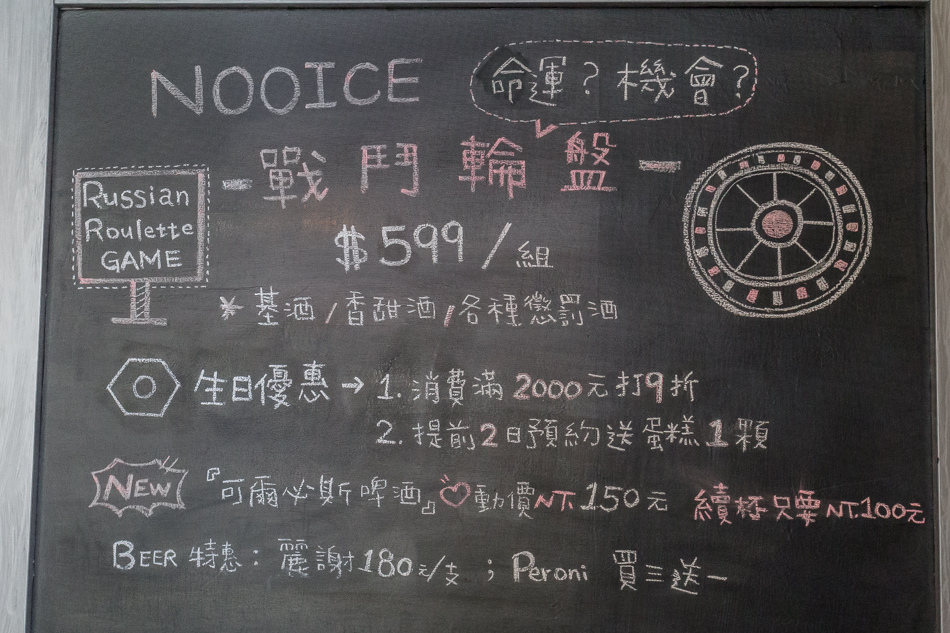 NOOICE 命運？機會？
Russian
Roulette
GAME
-戰鬥輪盤-
$599/組
＊基酒/香甜酒/各種懲罰酒
生日優惠→1.消費滿2000元打9折
2.提前2日預約送蛋糕1顆
NEW『可爾必斯啤酒』♡動價NT.150元 續杯只要NT.100元
BEER 特惠：麗謝180元/支；Peroni 買三送一